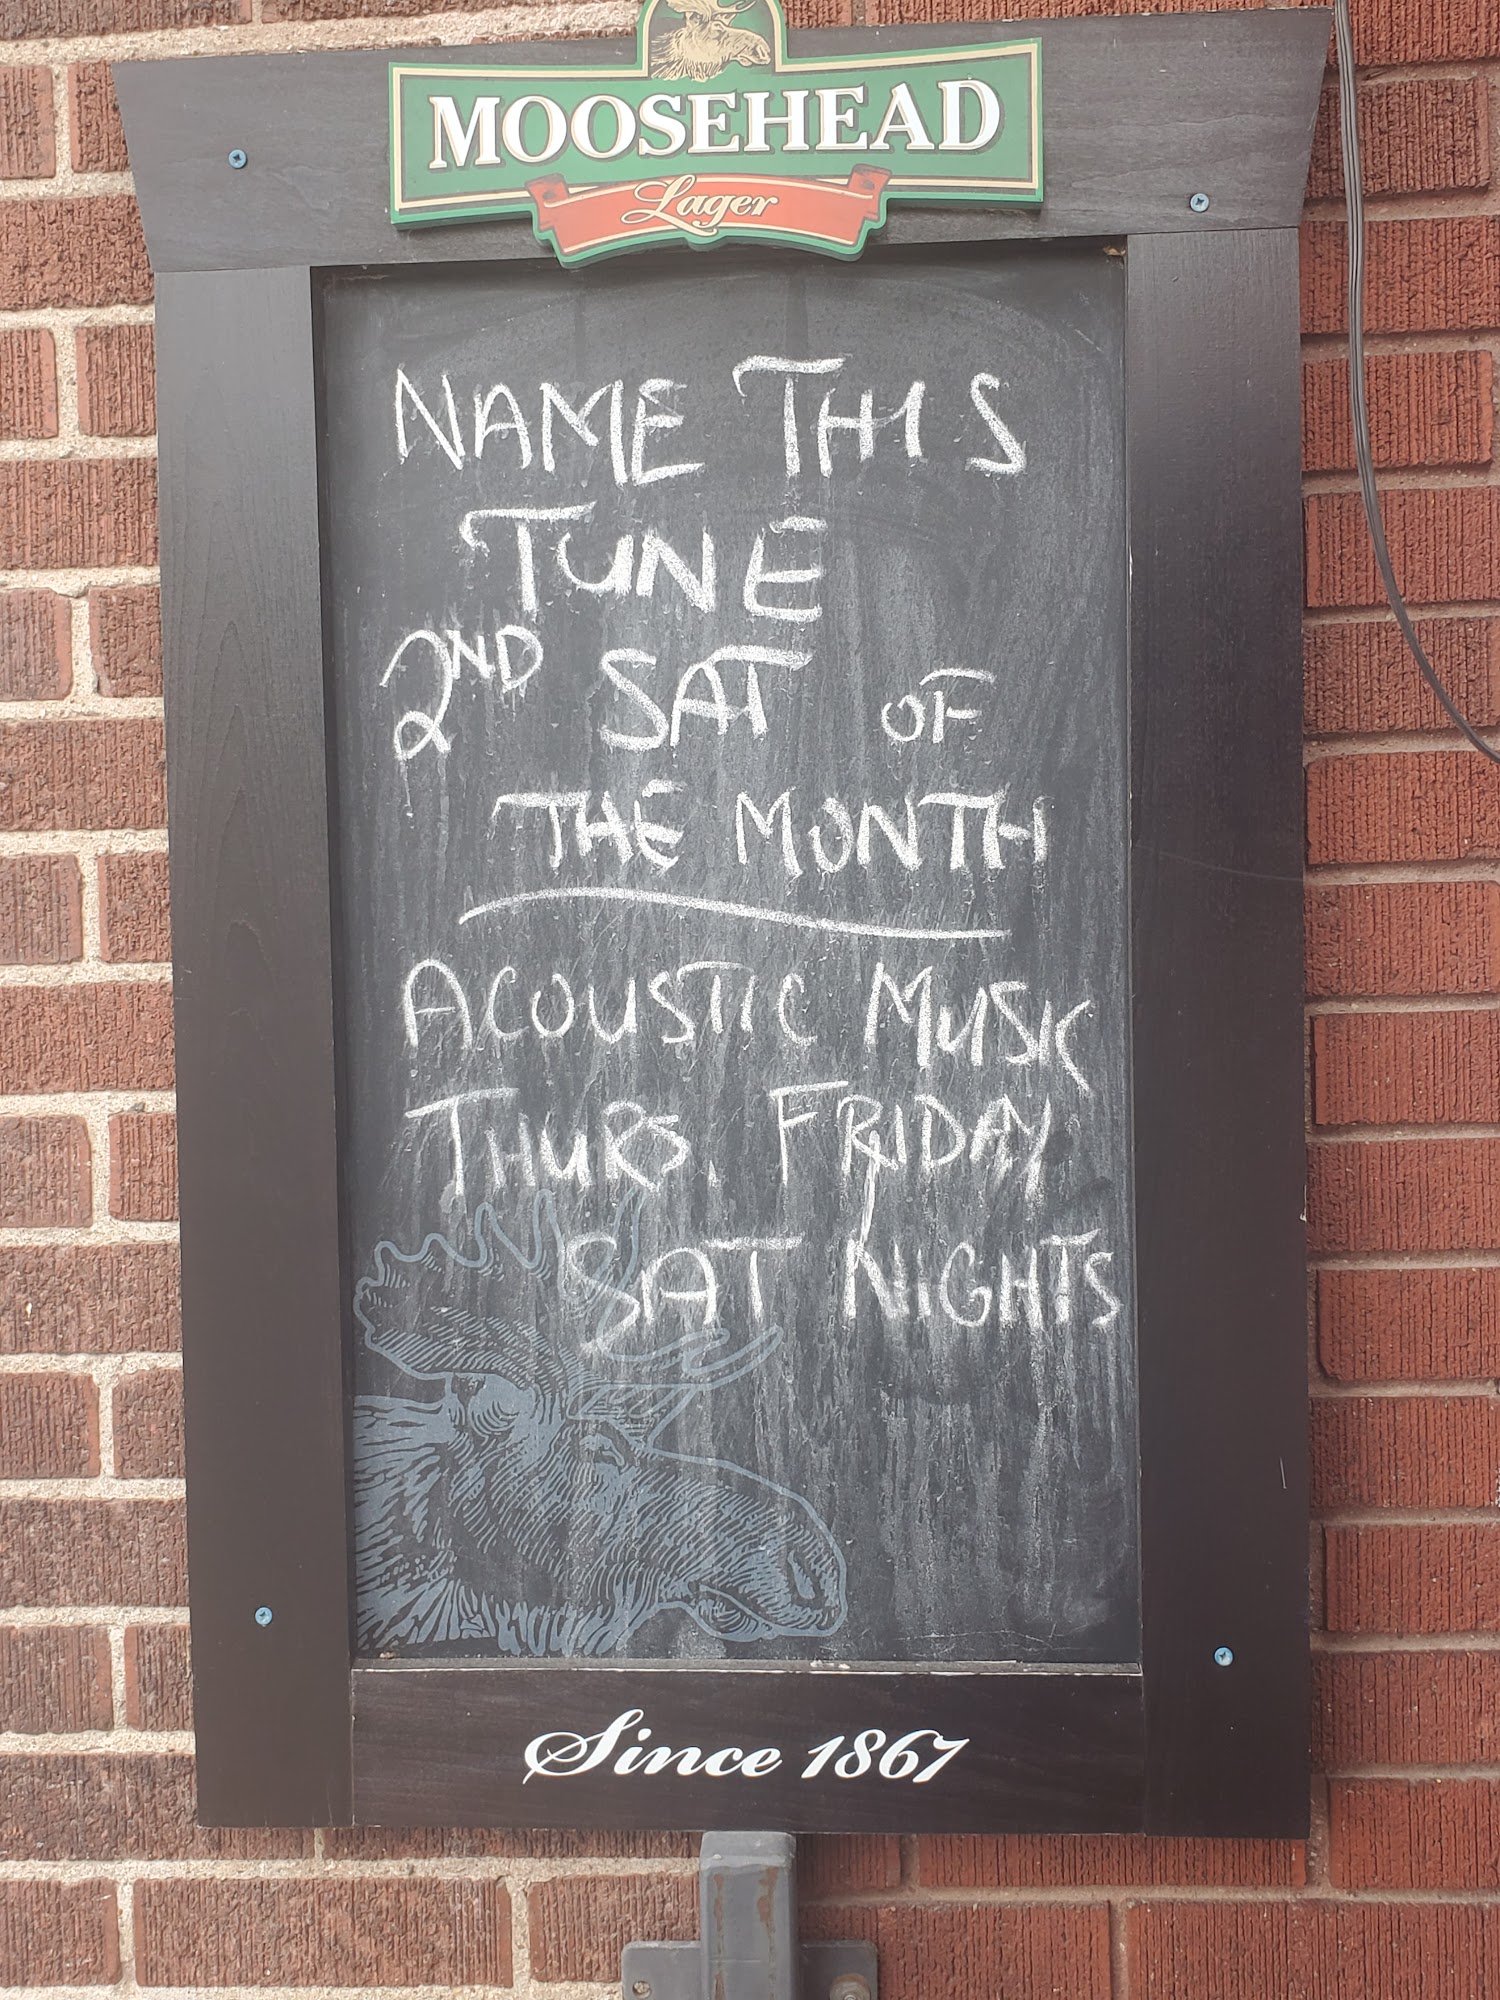 MOOSEHEAD
Lager
NAME THIS
TUNE
2ND SAT OF
THE MONTH
ACOUSTIC MUSIC
THURS. FRIDAY
SAT NIGHTS
Since 1867